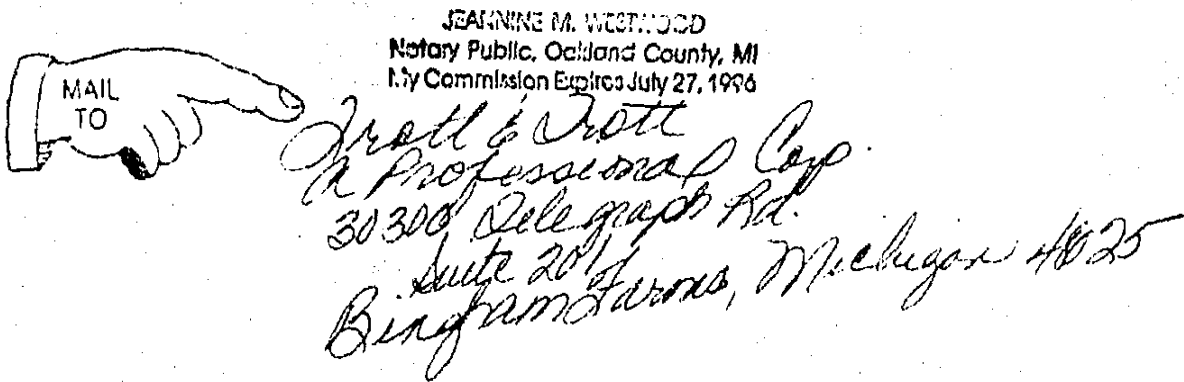 JEANNINE M. WESTWOOD
Notary Public, Oakland County, MI
My Commission Expires July 27, 1996
MAIL
TO
Trott & Trott
A Professional Corp.
30300 Telegraph Rd.
Suite 201
Bingham Farms, Michigan 48025